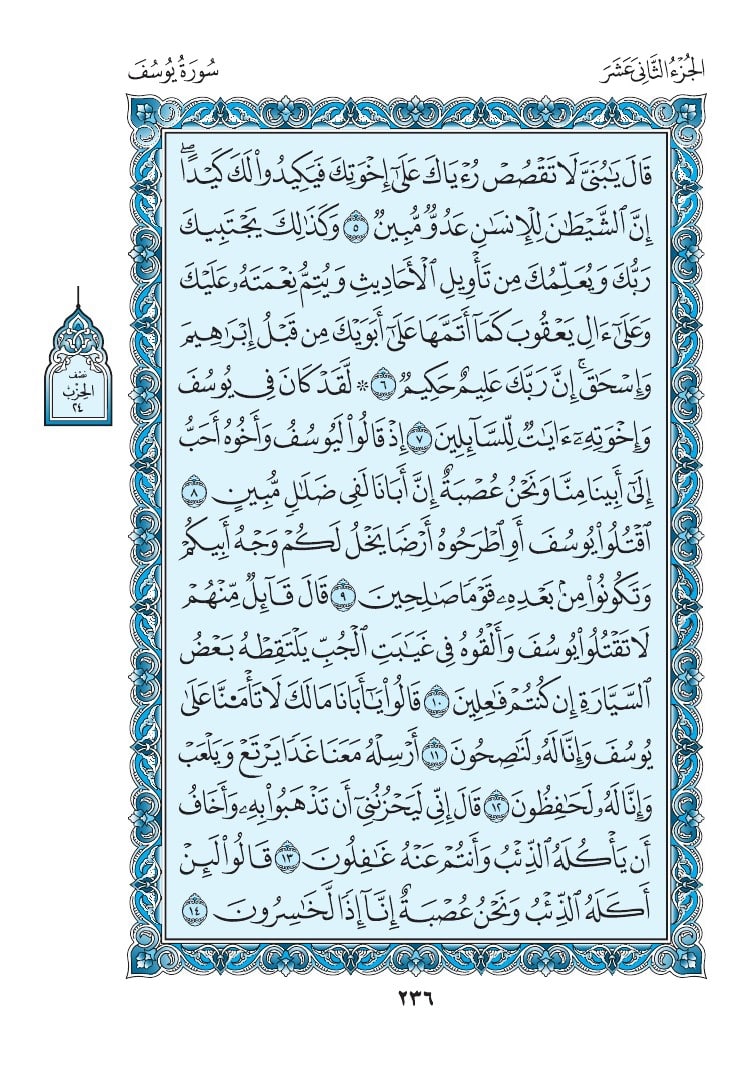 الجُزْءُ الثَّانِي عَشَرَ
سُورَةُ يُوسُفَ
قَالَ يَٰبُنَىَّ لَا تَقْصُصْ رُءْيَاكَ عَلَىٰٓ إِخْوَتِكَ فَيَكِيدُوا۟ لَكَ كَيْدًاۖ
إِنَّ ٱلشَّيْطَٰنَ لِلْإِنسَٰنِ عَدُوٌّ مُّبِينٌ ٥ وَكَذَٰلِكَ يَجْتَبِيكَ
رَبُّكَ وَيُعَلِّمُكَ مِن تَأْوِيلِ ٱلْأَحَادِيثِ وَيُتِمُّ نِعْمَتَهُۥ عَلَيْكَ
وَعَلَىٰٓ ءَالِ يَعْقُوبَ كَمَآ أَتَمَّهَا عَلَىٰٓ أَبَوَيْكَ مِن قَبْلُ إِبْرَٰهِيمَ
وَإِسْحَٰقَۚ إِنَّ رَبَّكَ عَلِيمٌ حَكِيمٌ ٦ ۞ لَّقَدْ كَانَ فِى يُوسُفَ
وَإِخْوَتِهِۦٓ ءَايَٰتٌ لِّلسَّآئِلِينَ ٧ إِذْ قَالُوا۟ لَيُوسُفُ وَأَخُوهُ أَحَبُّ
إِلَىٰٓ أَبِينَا مِنَّا وَنَحْنُ عُصْبَةٌ إِنَّ أَبَانَا لَفِى ضَلَٰلٍ مُّبِينٍ ٨
ٱقْتُلُوا۟ يُوسُفَ أَوِ ٱطْرَحُوهُ أَرْضًا يَخْلُ لَكُمْ وَجْهُ أَبِيكُمْ
وَتَكُونُوا۟ مِنۢ بَعْدِهِۦ قَوْمًا صَٰلِحِينَ ٩ قَالَ قَآئِلٌ مِّنْهُمْ
لَا تَقْتُلُوا۟ يُوسُفَ وَأَلْقُوهُ فِى غَيَٰبَتِ ٱلْجُبِّ يَلْتَقِطْهُ بَعْضُ
ٱلسَّيَّارَةِ إِن كُنتُمْ فَٰعِلِينَ ١٠ قَالُوا۟ يَٰٓأَبَانَا مَا لَكَ لَا تَأْمَ۫نَّا عَلَىٰ
يُوسُفَ وَإِنَّا لَهُۥ لَنَٰصِحُونَ ١١ أَرْسِلْهُ مَعَنَا غَدًا يَرْتَعْ وَيَلْعَبْ
وَإِنَّا لَهُۥ لَحَٰفِظُونَ ١٢ قَالَ إِنِّى لَيَحْزُنُنِىٓ أَن تَذْهَبُوا۟ بِهِۦ وَأَخَافُ
أَن يَأْكُلَهُ ٱلذِّئْبُ وَأَنتُمْ عَنْهُ غَٰفِلُونَ ١٣ قَالُوا۟ لَئِنْ
أَكَلَهُ ٱلذِّئْبُ وَنَحْنُ عُصْبَةٌ إِنَّآ إِذًا لَّخَٰسِرُونَ ١٤
نصف
الحزب
٢٤
٢٣٦